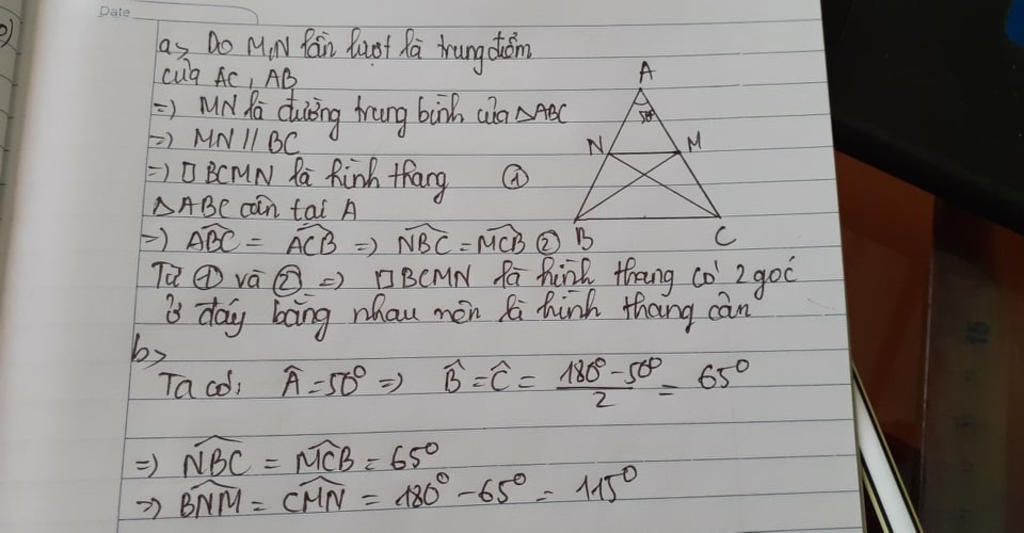 Date
a, Do M,N lần lượt là trung điểm
của AC, AB
=) MN là đường trung bình của △ABC
=) MN // BC
=) □BCMN là hình thang ①
△ABC cân tại A
=) \widehat{ABC} = \widehat{ACB} =) \widehat{NBC} = \widehat{MCB} ②
Từ ① và ② =) □BCMN là hình thang có 2 góc
ở đáy bằng nhau nên là hình thang cân
b>
Ta có: Â = 50° =) B̂ = Ĉ = (180° - 50°)/2 = 65°
=) \widehat{NBC} = \widehat{MCB} = 65°
=) \widehat{BNM} = \widehat{CMN} = 180° - 65° = 115°
A
50°
N M
B C
15